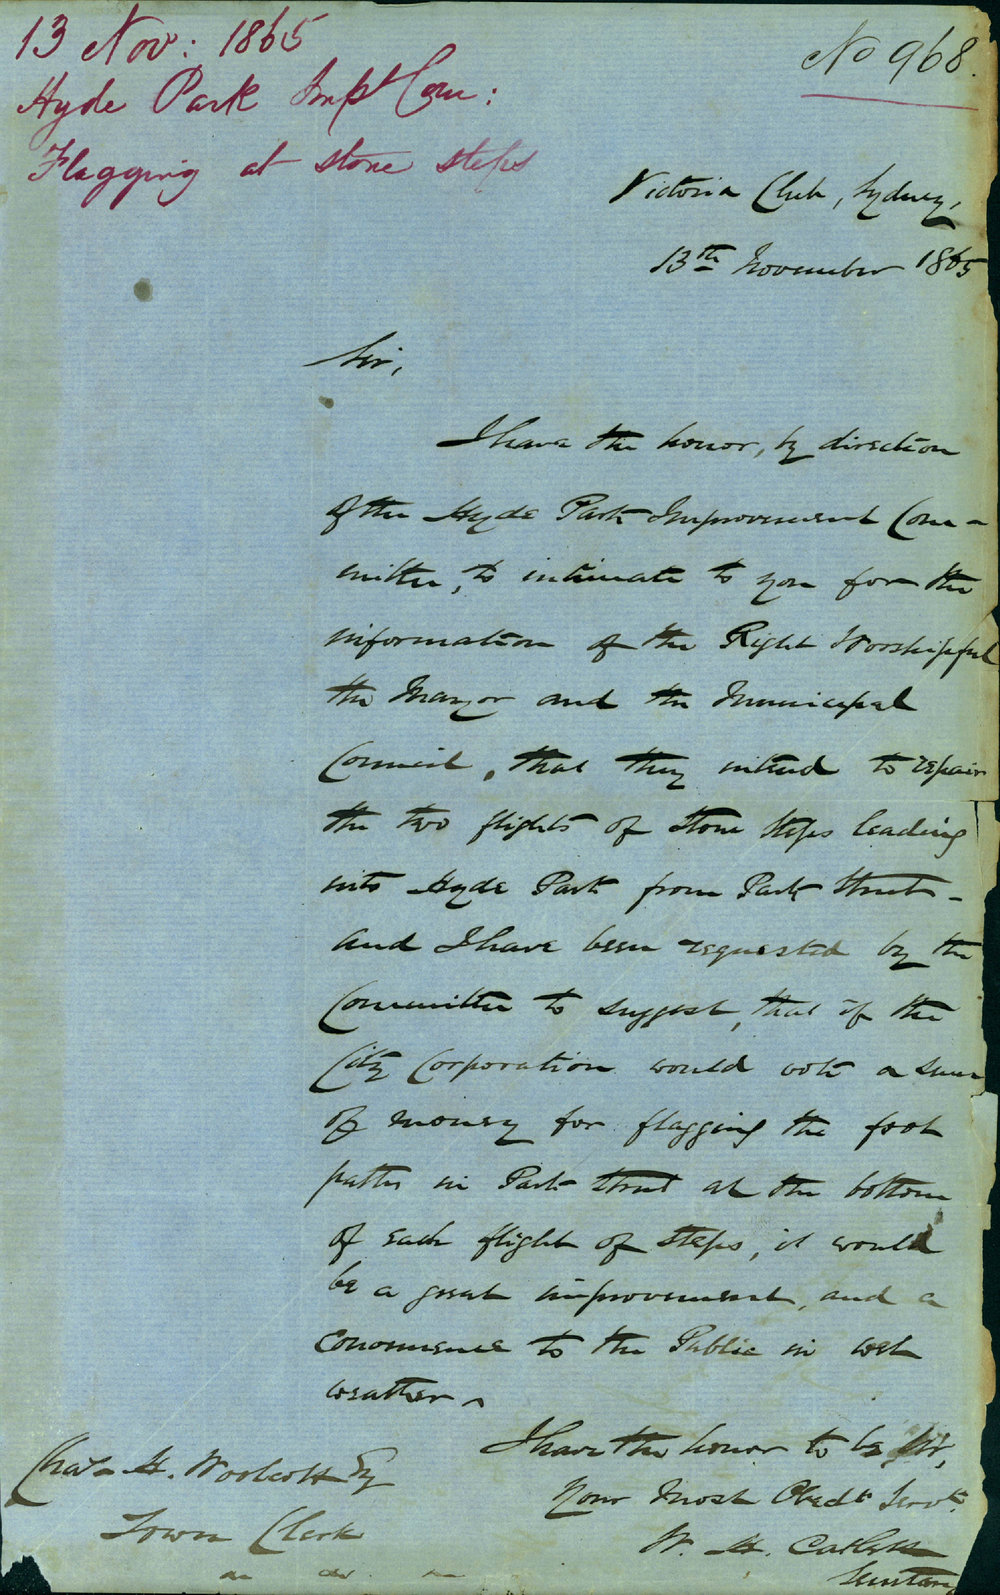 13 Nov: 1865
Hyde Park Impt Com:
Flagging at stone steps
No 968.
Victoria Club, Sydney,
13th November 1865
Sir,
I have the honor, by direction
of the Hyde Park Improvement Com-
mittee, to intimate to you for the
information of the Right Worshipful
the Mayor and the Municipal
Council, that they intend to repair
the two flights of Stone Steps leading
into Hyde Park from Park Street -
and I have been requested by the
Committee to suggest, that if the
City Corporation would vote a sum
of money for flagging the foot
paths in Park Street at the bottom
of each flight of steps, it would
be a great improvement, and a
convenience to the Public in wet
weather.
I have the honor to be Sir,
Your Most Obedt Servt
W. H. 
Secretary
Chas. H. Woolcott Esq
Town Clerk